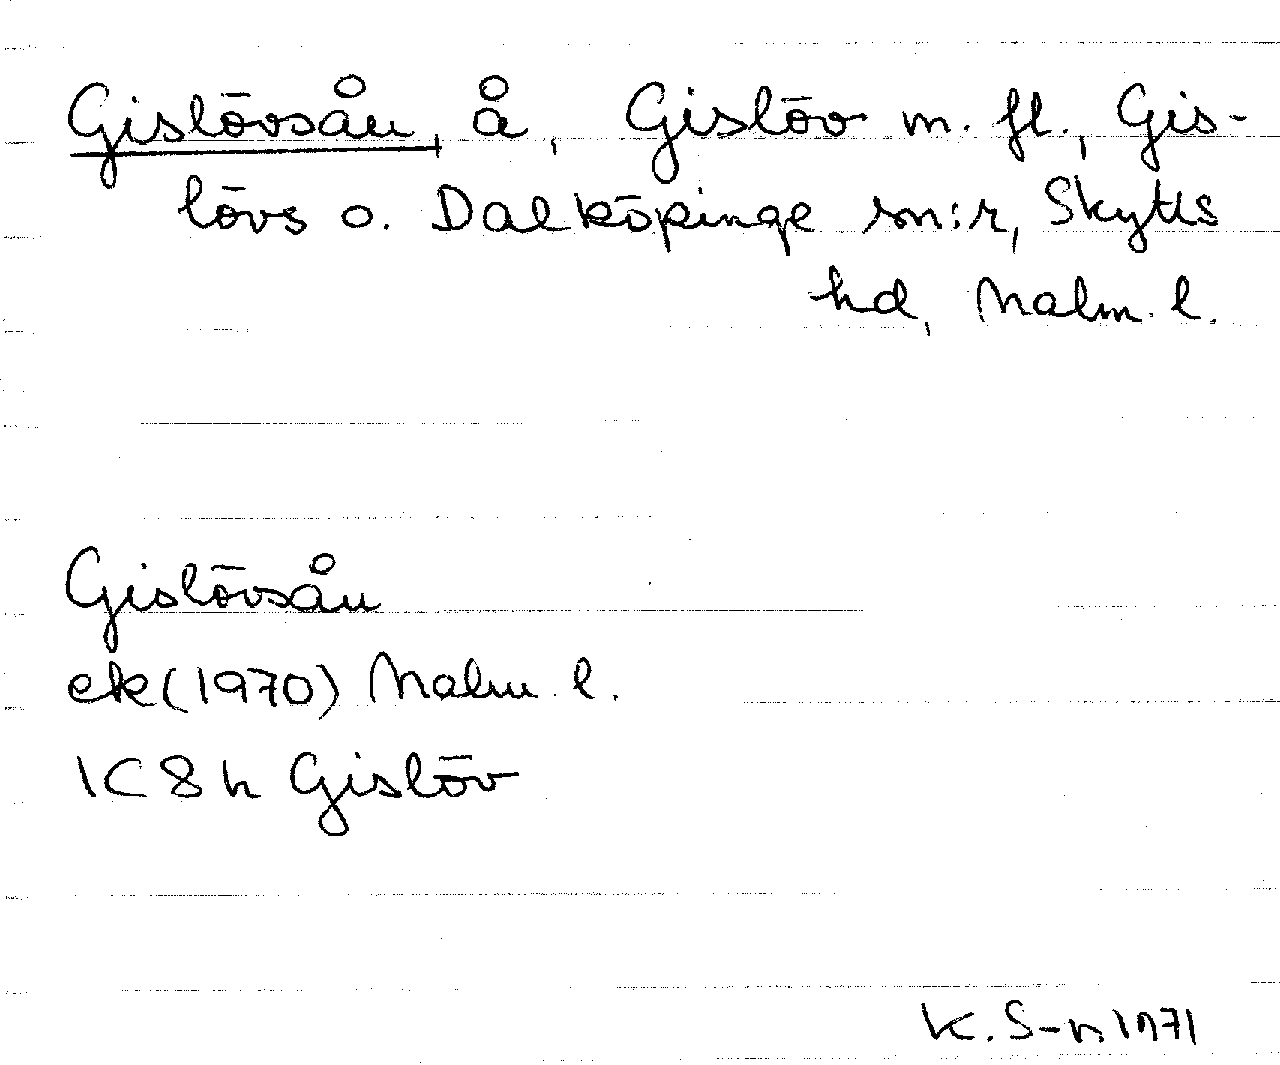 Gislövsån, å, Gislöv m. fl., Gis-
lövs o. Dalköpinge sn:r, Skytts
hd, Malm. l.
Gislövsån
ek(1970) Malm. l.
1C8h Gislöv
K. S-n 1971